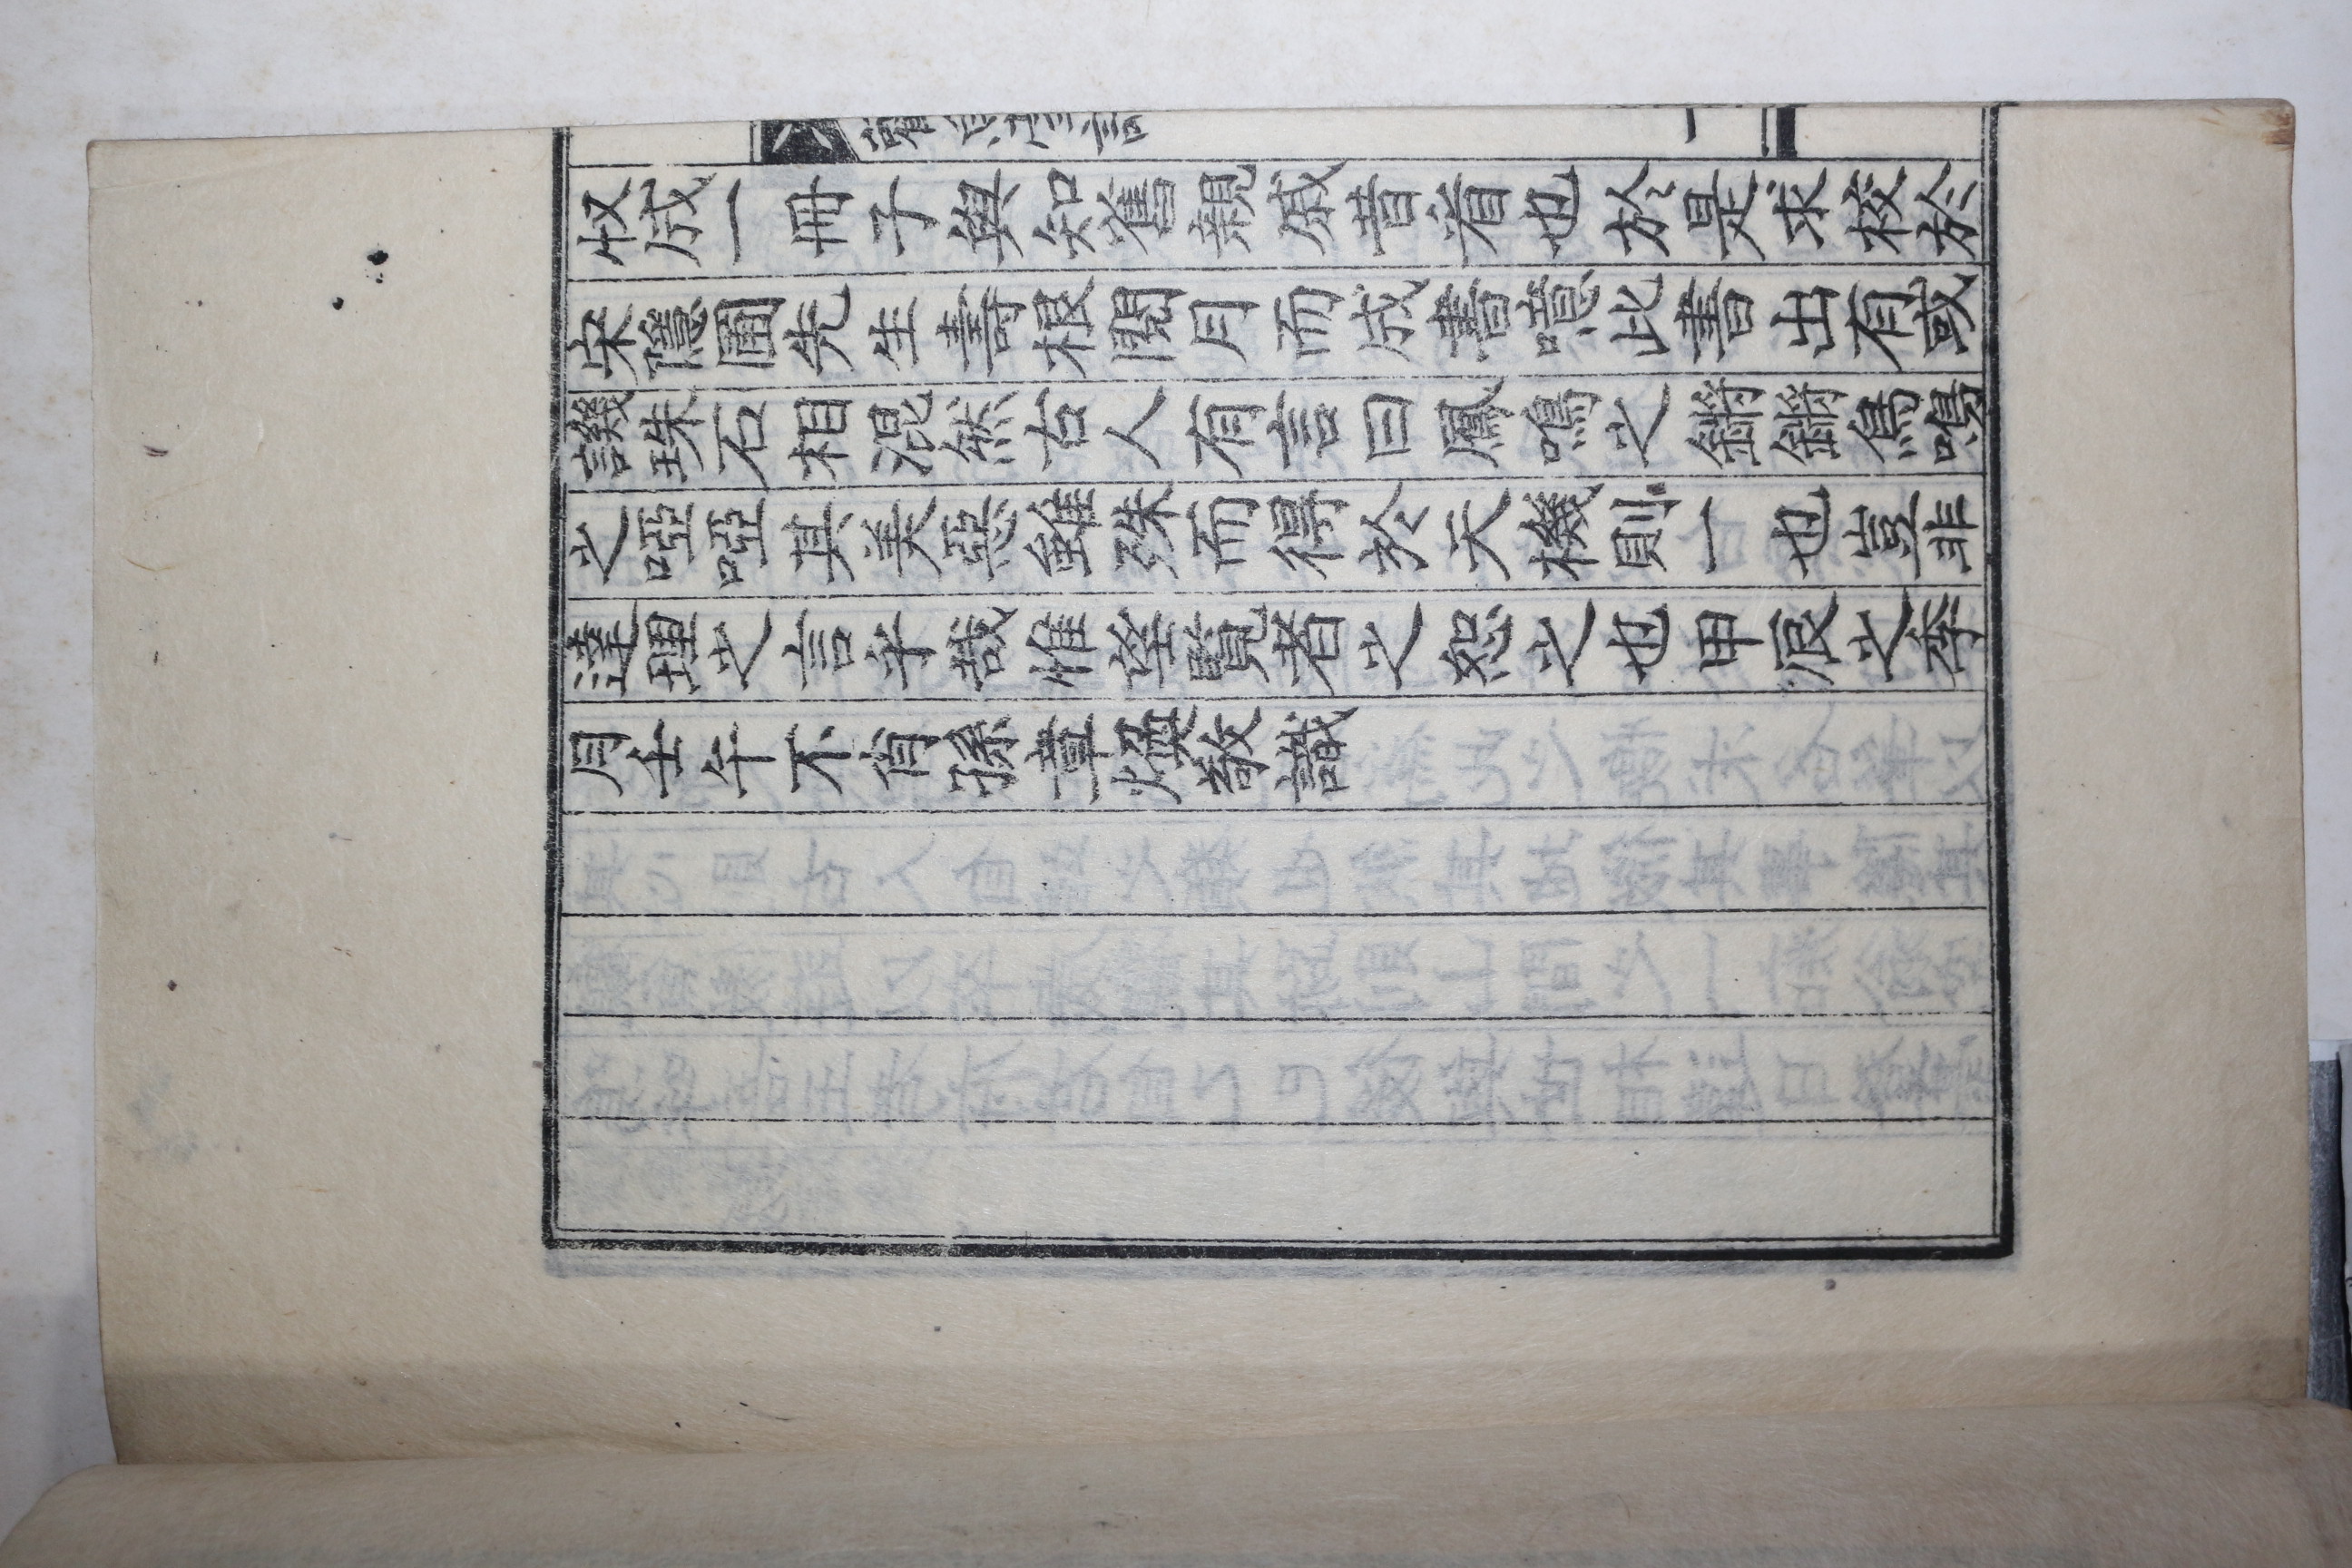 収成一冊子與知舊親戚昔看也於是求校於
宋隱圃先生壽根閱月而成書噫此書出有或
譏珠石相混然古人有言曰鳳鳴之鏘鏘鳥鳴
之啞啞其美惡雖殊而得於天機則一也豈非
達理之言乎哉惟望覽者之恕之也甲辰之季
月壬午不肖孫章煥敬識
一